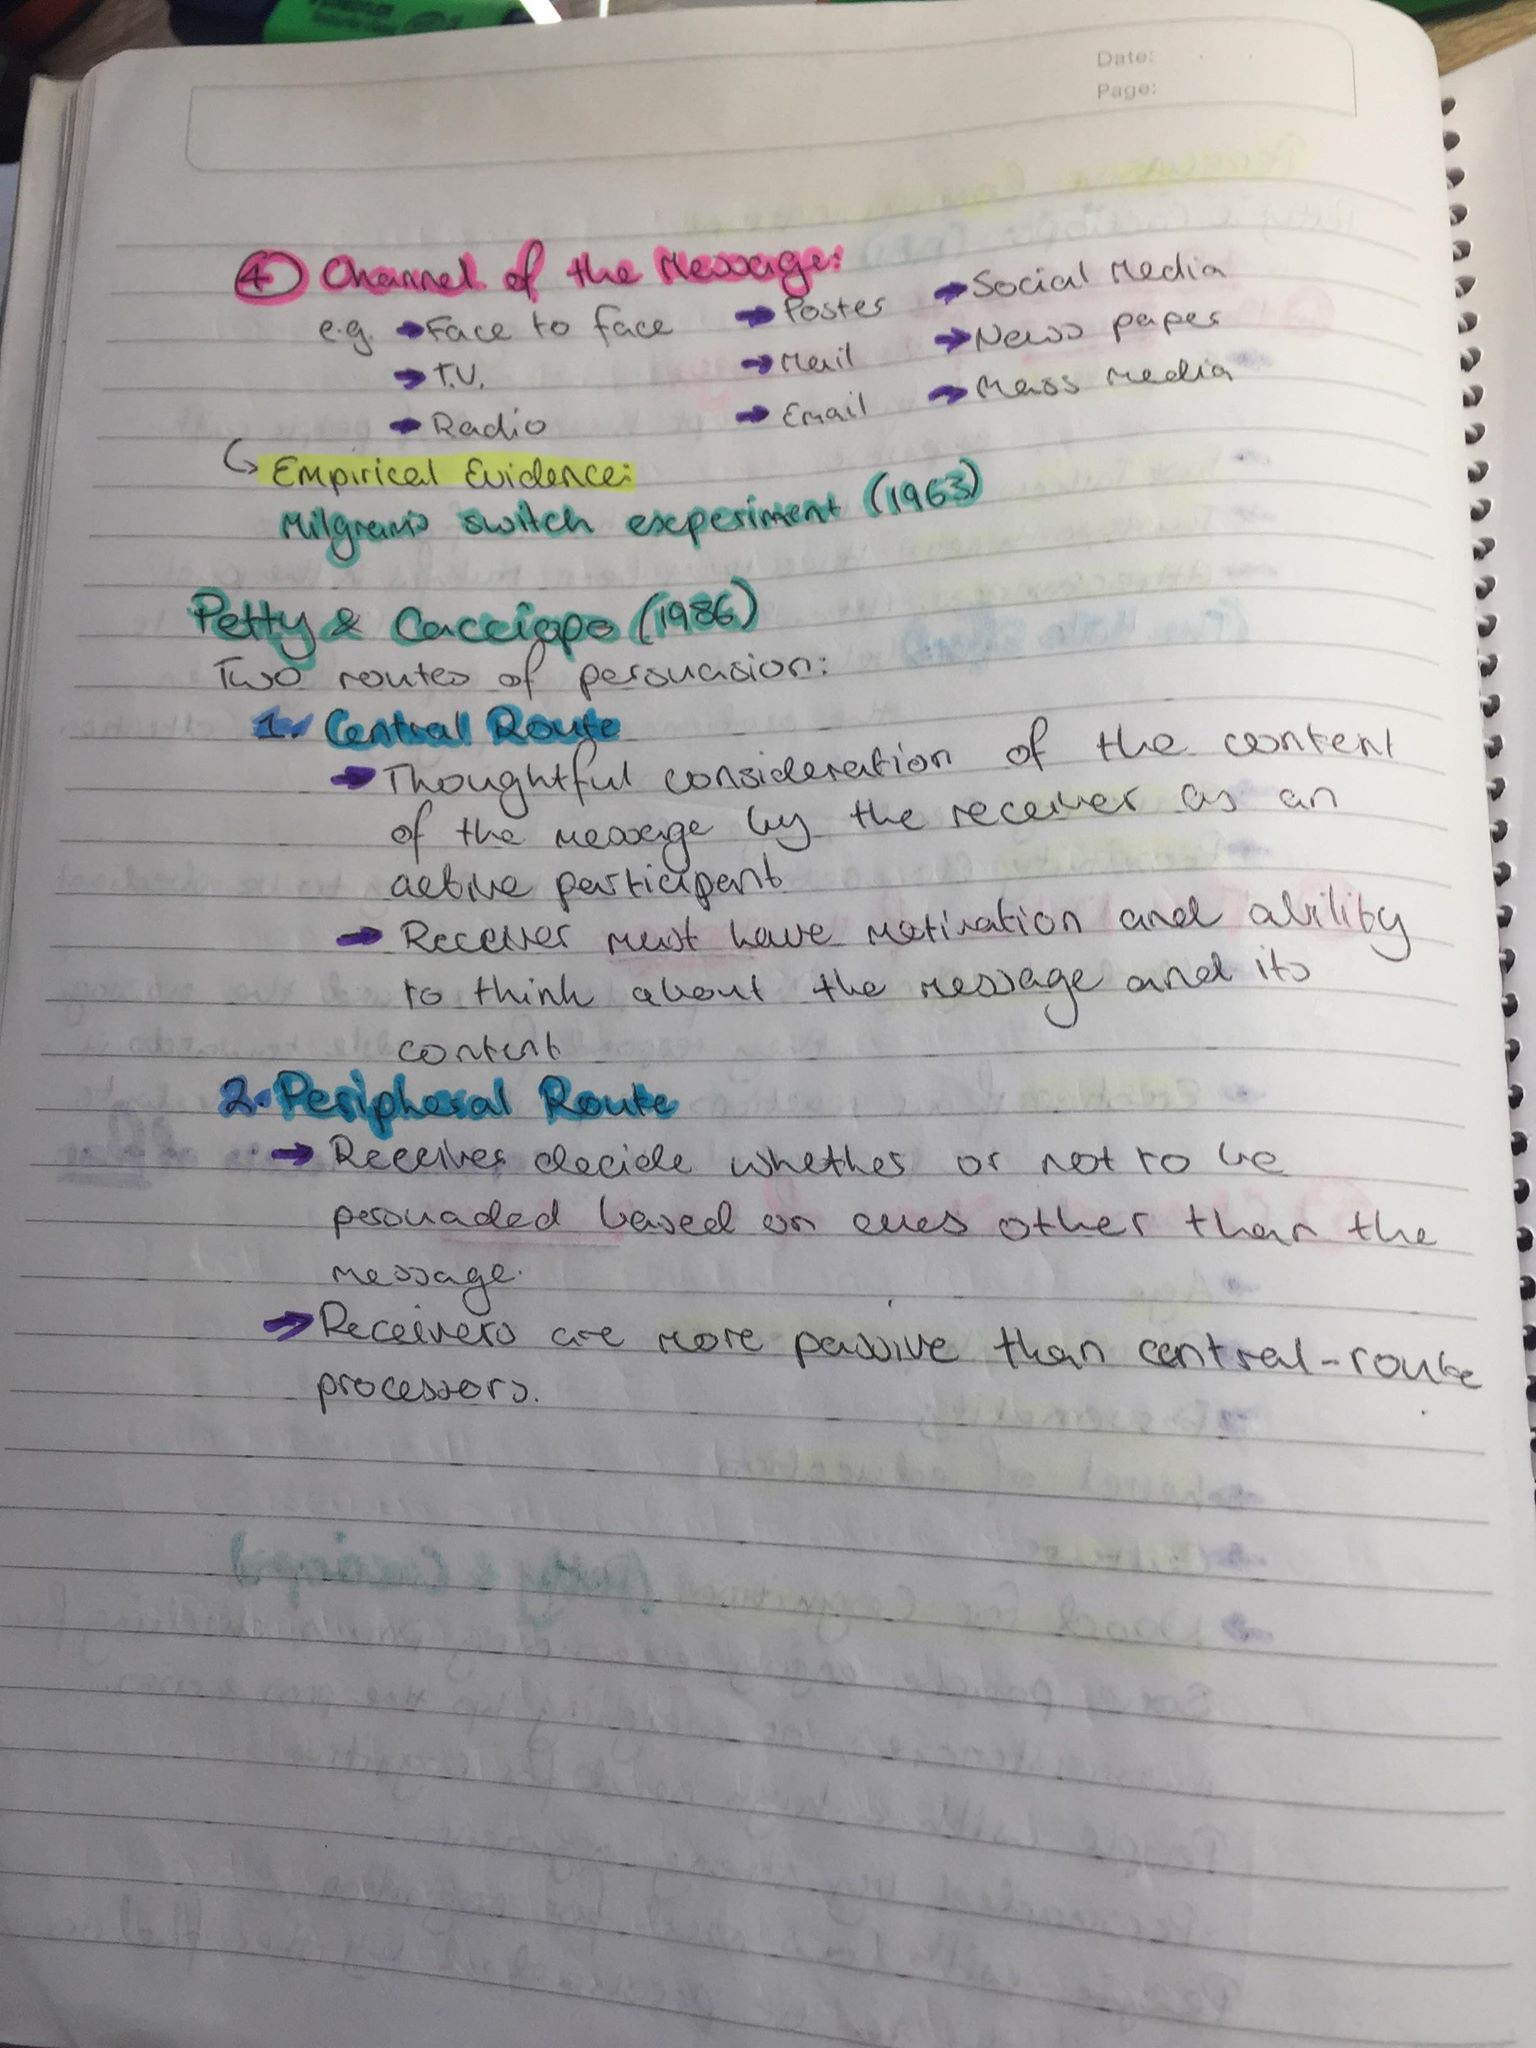 Date:
Page:
4 Channel of the Message:
e.g. → Face to face → Poster → Social Media
→ T.V. → Mail → News paper
→ Radio → Email → Mass Media
↳ Empirical Evidence:
Milgram's switch experiment (1963)
Petty & Cacciapo (1986)
Two routes of persuasion:
1. Central Route
→ Thoughtful consideration of the content
of the message by the receiver as an
active participant
→ Receiver must have motivation and ability
to think about the message and its
content
2. Peripheral Route
→ Receiver decide whether or not to be
persuaded based on cues other than the
message.
→ Receivers are more passive than central-route
processors.